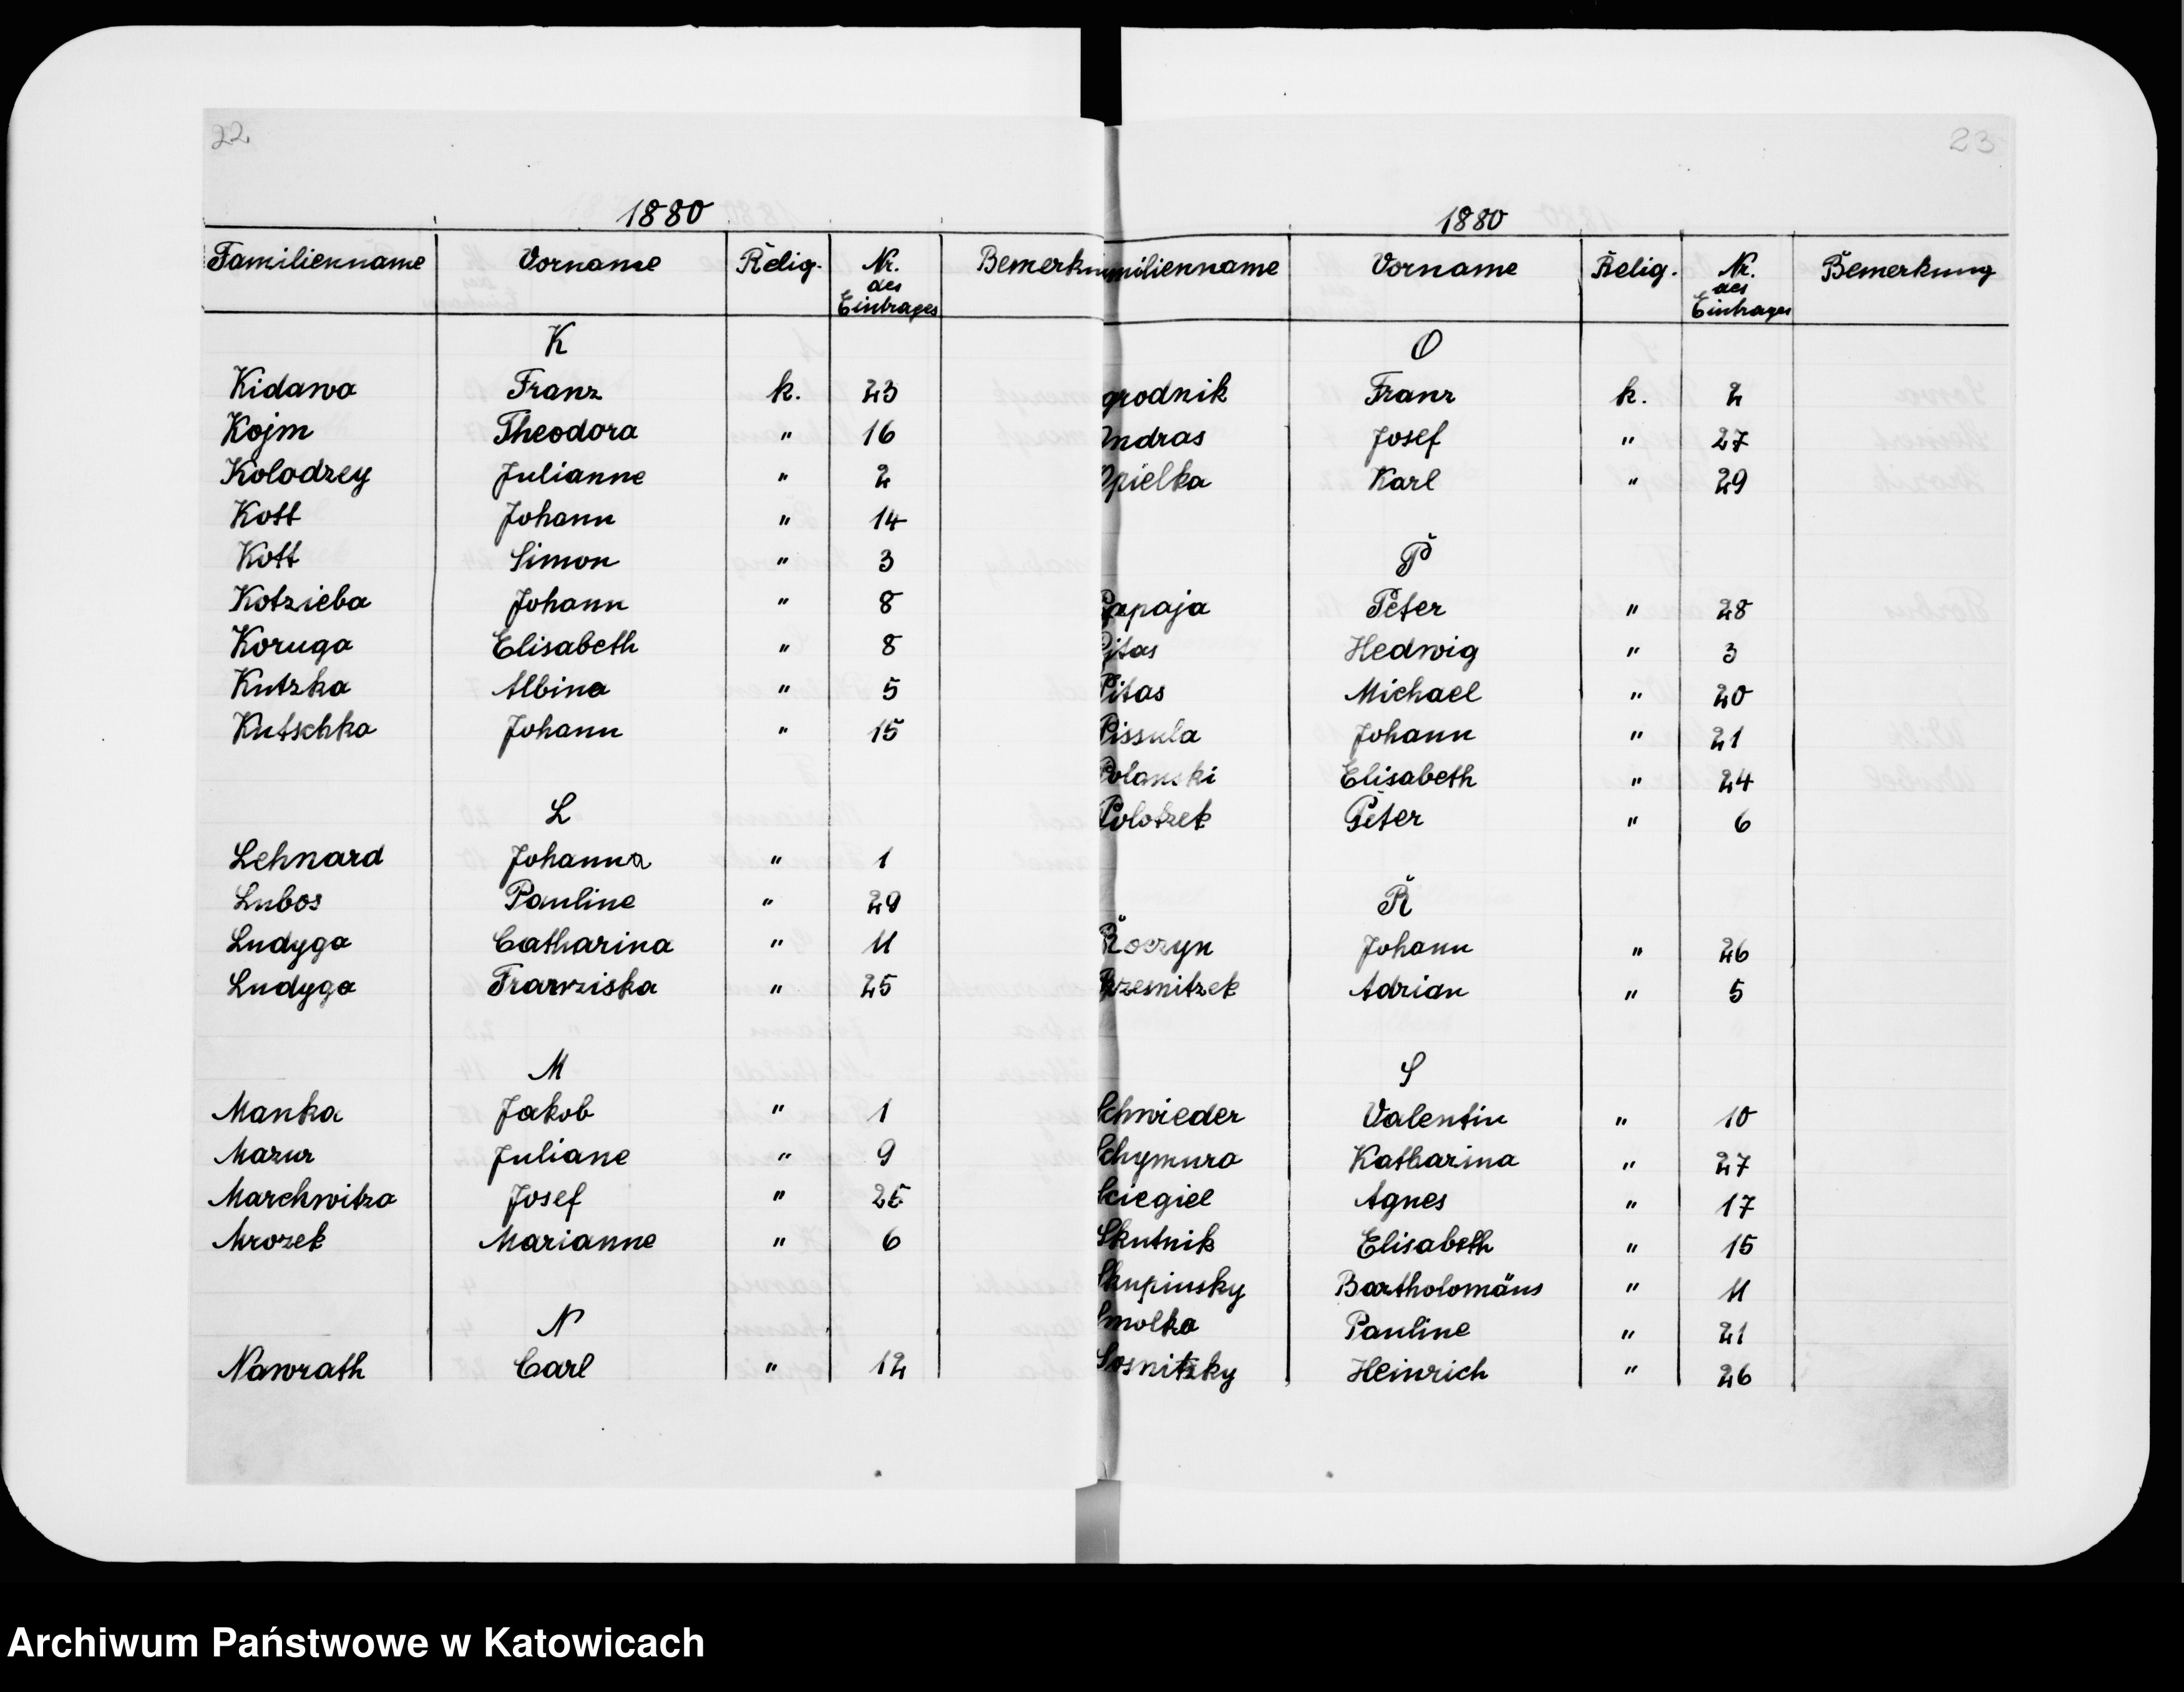 22
1880
Familienname Vorname Relig. Nr. des Eintrages Bemerkun
K
Kidawa Franz k. 23
Kojm Theodora " 16
Kolodzey Julianne " 2
Kott Johann " 14
Kott Simon " 3
Kotzieba Johann " 8
Koruga Elisabeth " 8
Kutzka Albina " 5
Kutschka Johann " 15
L
Lehnard Johanna " 1
Lubos Pauline " 29
Ludyga Catharina " 11
Ludyga Franziska " 25
M
Manka Jakob " 1
Mazur Juliane " 9
Marchwitza Josef " 25
Mrozek Marianne " 6
N
Nawrath Carl " 12
23
1880
milienname Vorname Relig. Nr. des Eintrages Bemerkung
O
grodnik Franz k. 2
Ondras Josef " 27
Opielka Karl " 29
P
Papaja Peter " 28
Pitas Hedwig " 3
Pitas Michael " 20
Pissula Johann " 21
Polanski Elisabeth " 24
Polotzek Peter " 6
R
Roczyn Johann " 26
Rzesnitzek Adrian " 5
S
Schwieder Valentin " 10
Schymura Katharina " 27
Sciegiel Agnes " 17
Skutnik Elisabeth " 15
Skupinsky Bartholomäus " 11
Smolka Pauline " 21
Sosnitzky Heinrich " 26
Archiwum Państwowe w Katowicach